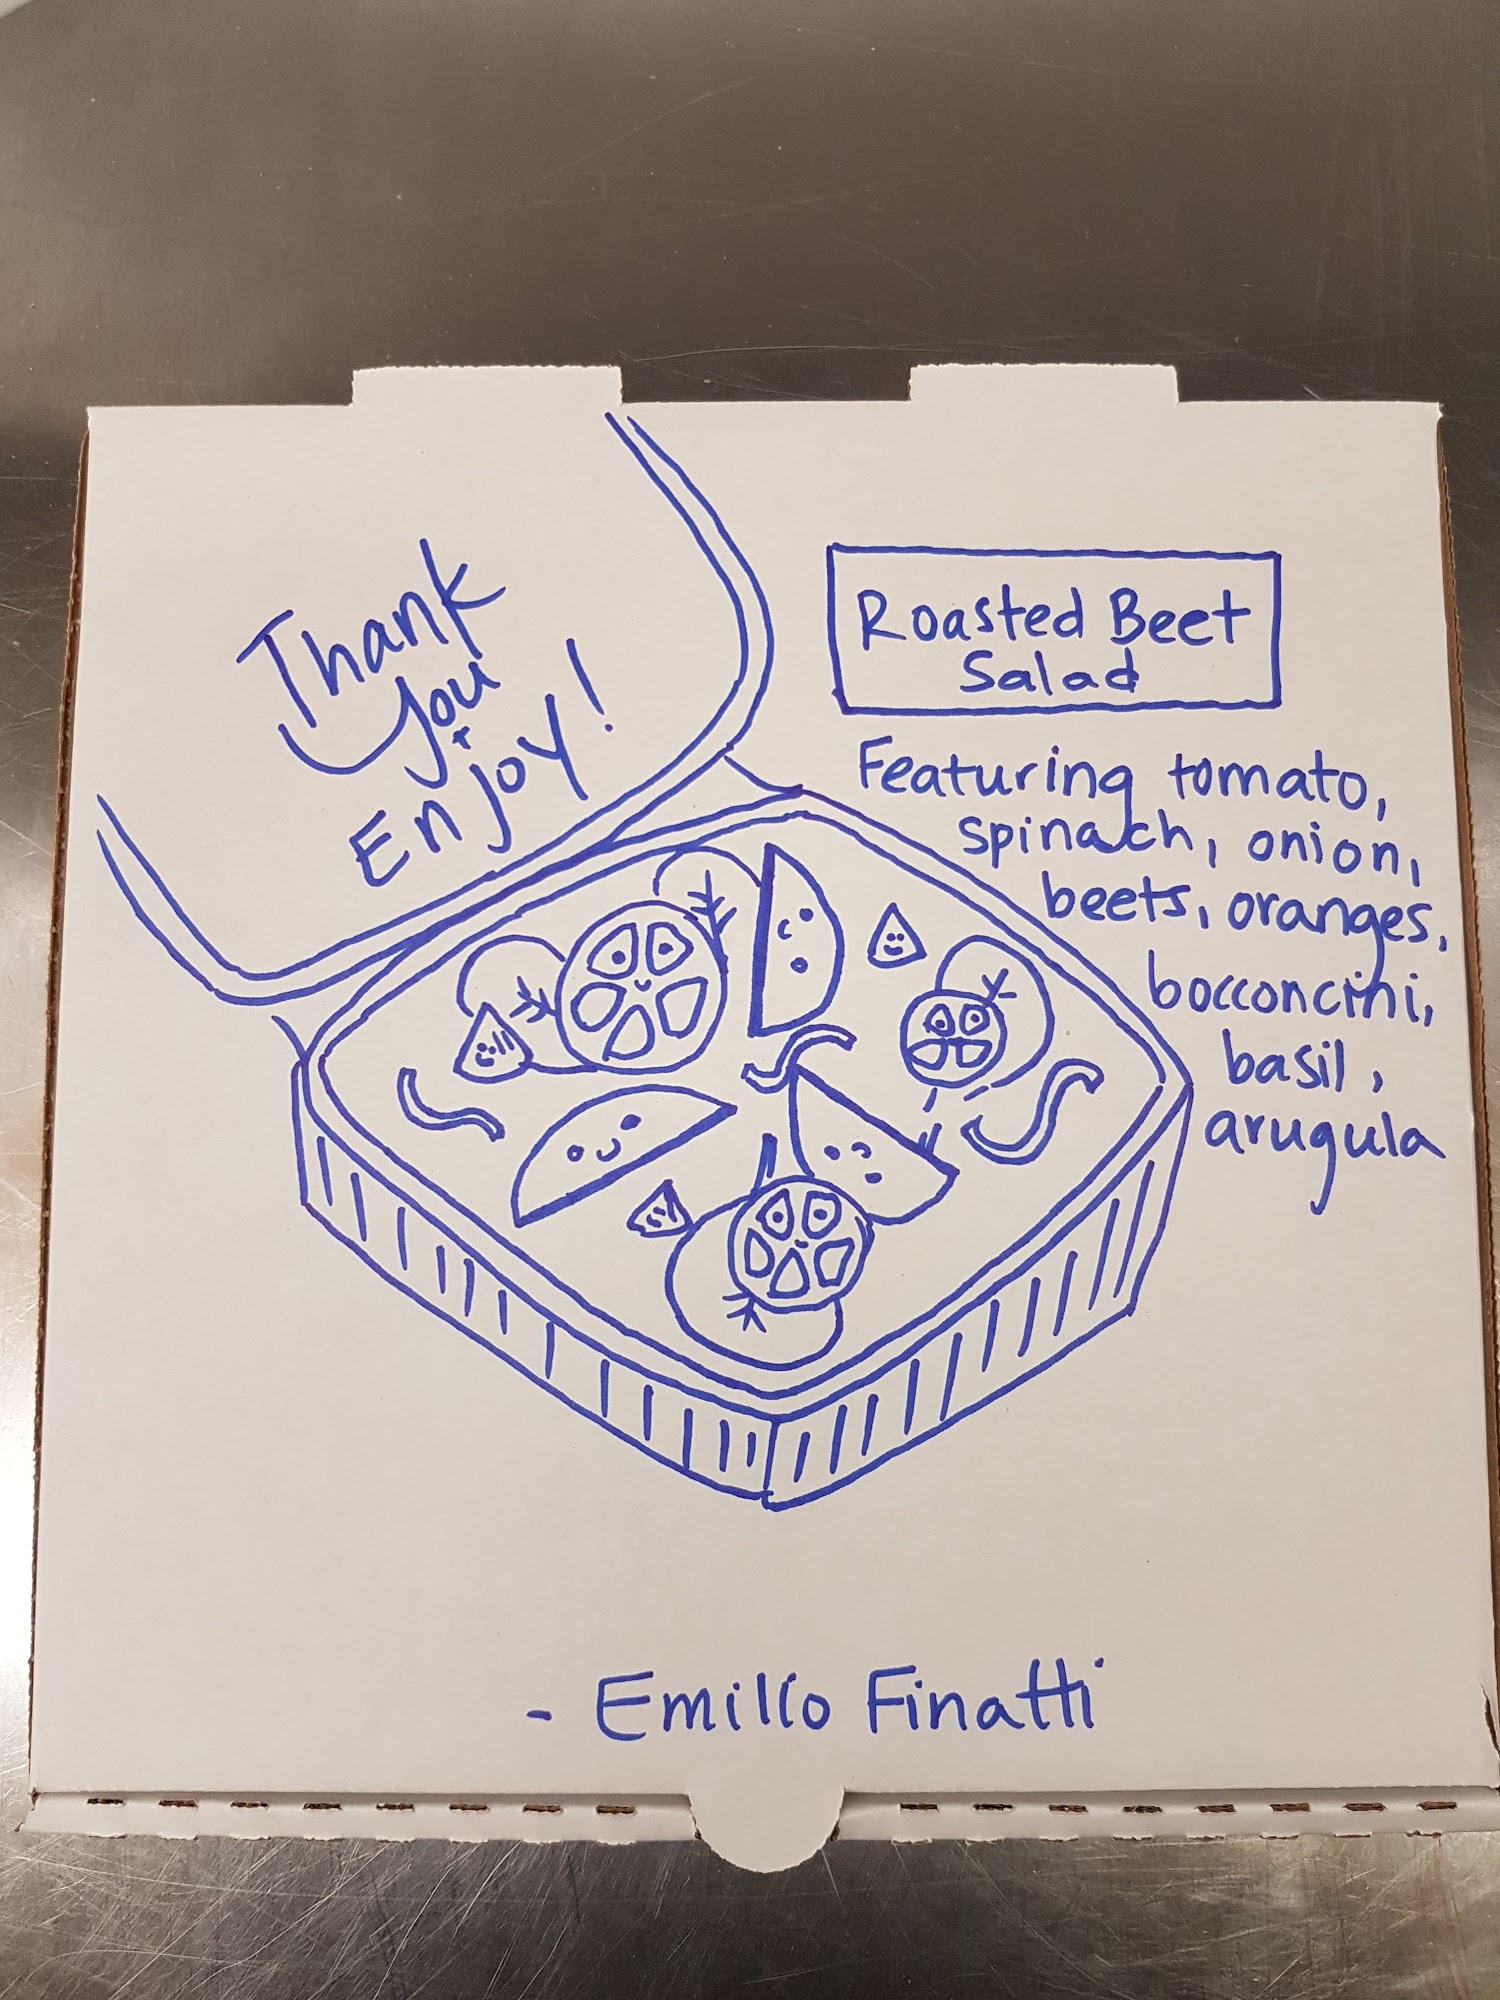 Thank
you
+
Enjoy!
Roasted Beet
Salad
Featuring tomato,
spinach, onion,
beets, oranges,
bocconcini,
basil,
arugula
- Emilio Finatti